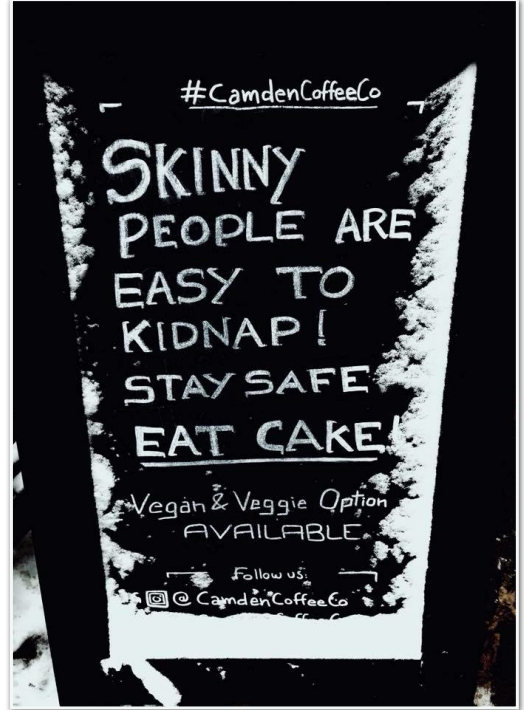 #CamdenCoffeeCo
SKINNY
PEOPLE ARE
EASY TO
KIDNAP!
STAY SAFE
EAT CAKE!
Vegan & Veggie Option
AVAILABLE
Follow us:
@CamdenCoffeeCo